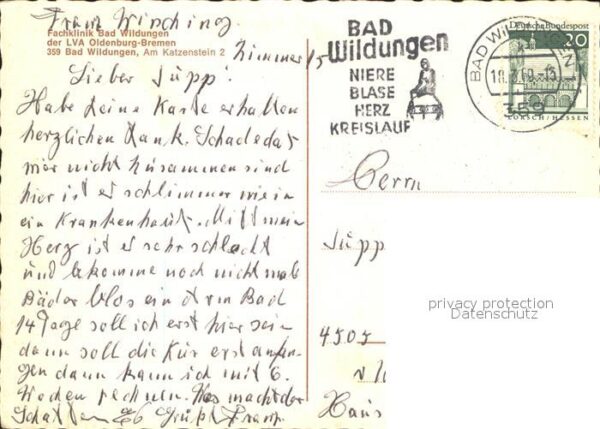 Franz Wirsching
Fachklinik Bad Wildungen
der LVA Oldenburg-Bremen
359 Bad Wildungen, Am Katzenstein 2
Zimmer
Lieber Jupp!
Habe deine Karte erhalten
herzlichen Dank. Schade das
wir nicht zusammen sind
hier ist es schlimmer wie in
ein Krankenhaus. Mitt mein
Herz ist es sehr schlecht
und bekomme noch nicht mal
Bäder blos ein Arm Bad
14 Tage soll ich erst hier sein
dann soll die Kur erst anfan-
gen dann kann ich mit 6.
Wochen rechnen. Was macht der
Gruß Franz
BAD
Wildungen
NIERE
BLASE
HERZ
KREISLAUF
BAD WIL
359
Deutsche Bundespost
20
LORSCH/HESSEN
Herrn
Jupp
privacy protection
Datenschutz
Haus